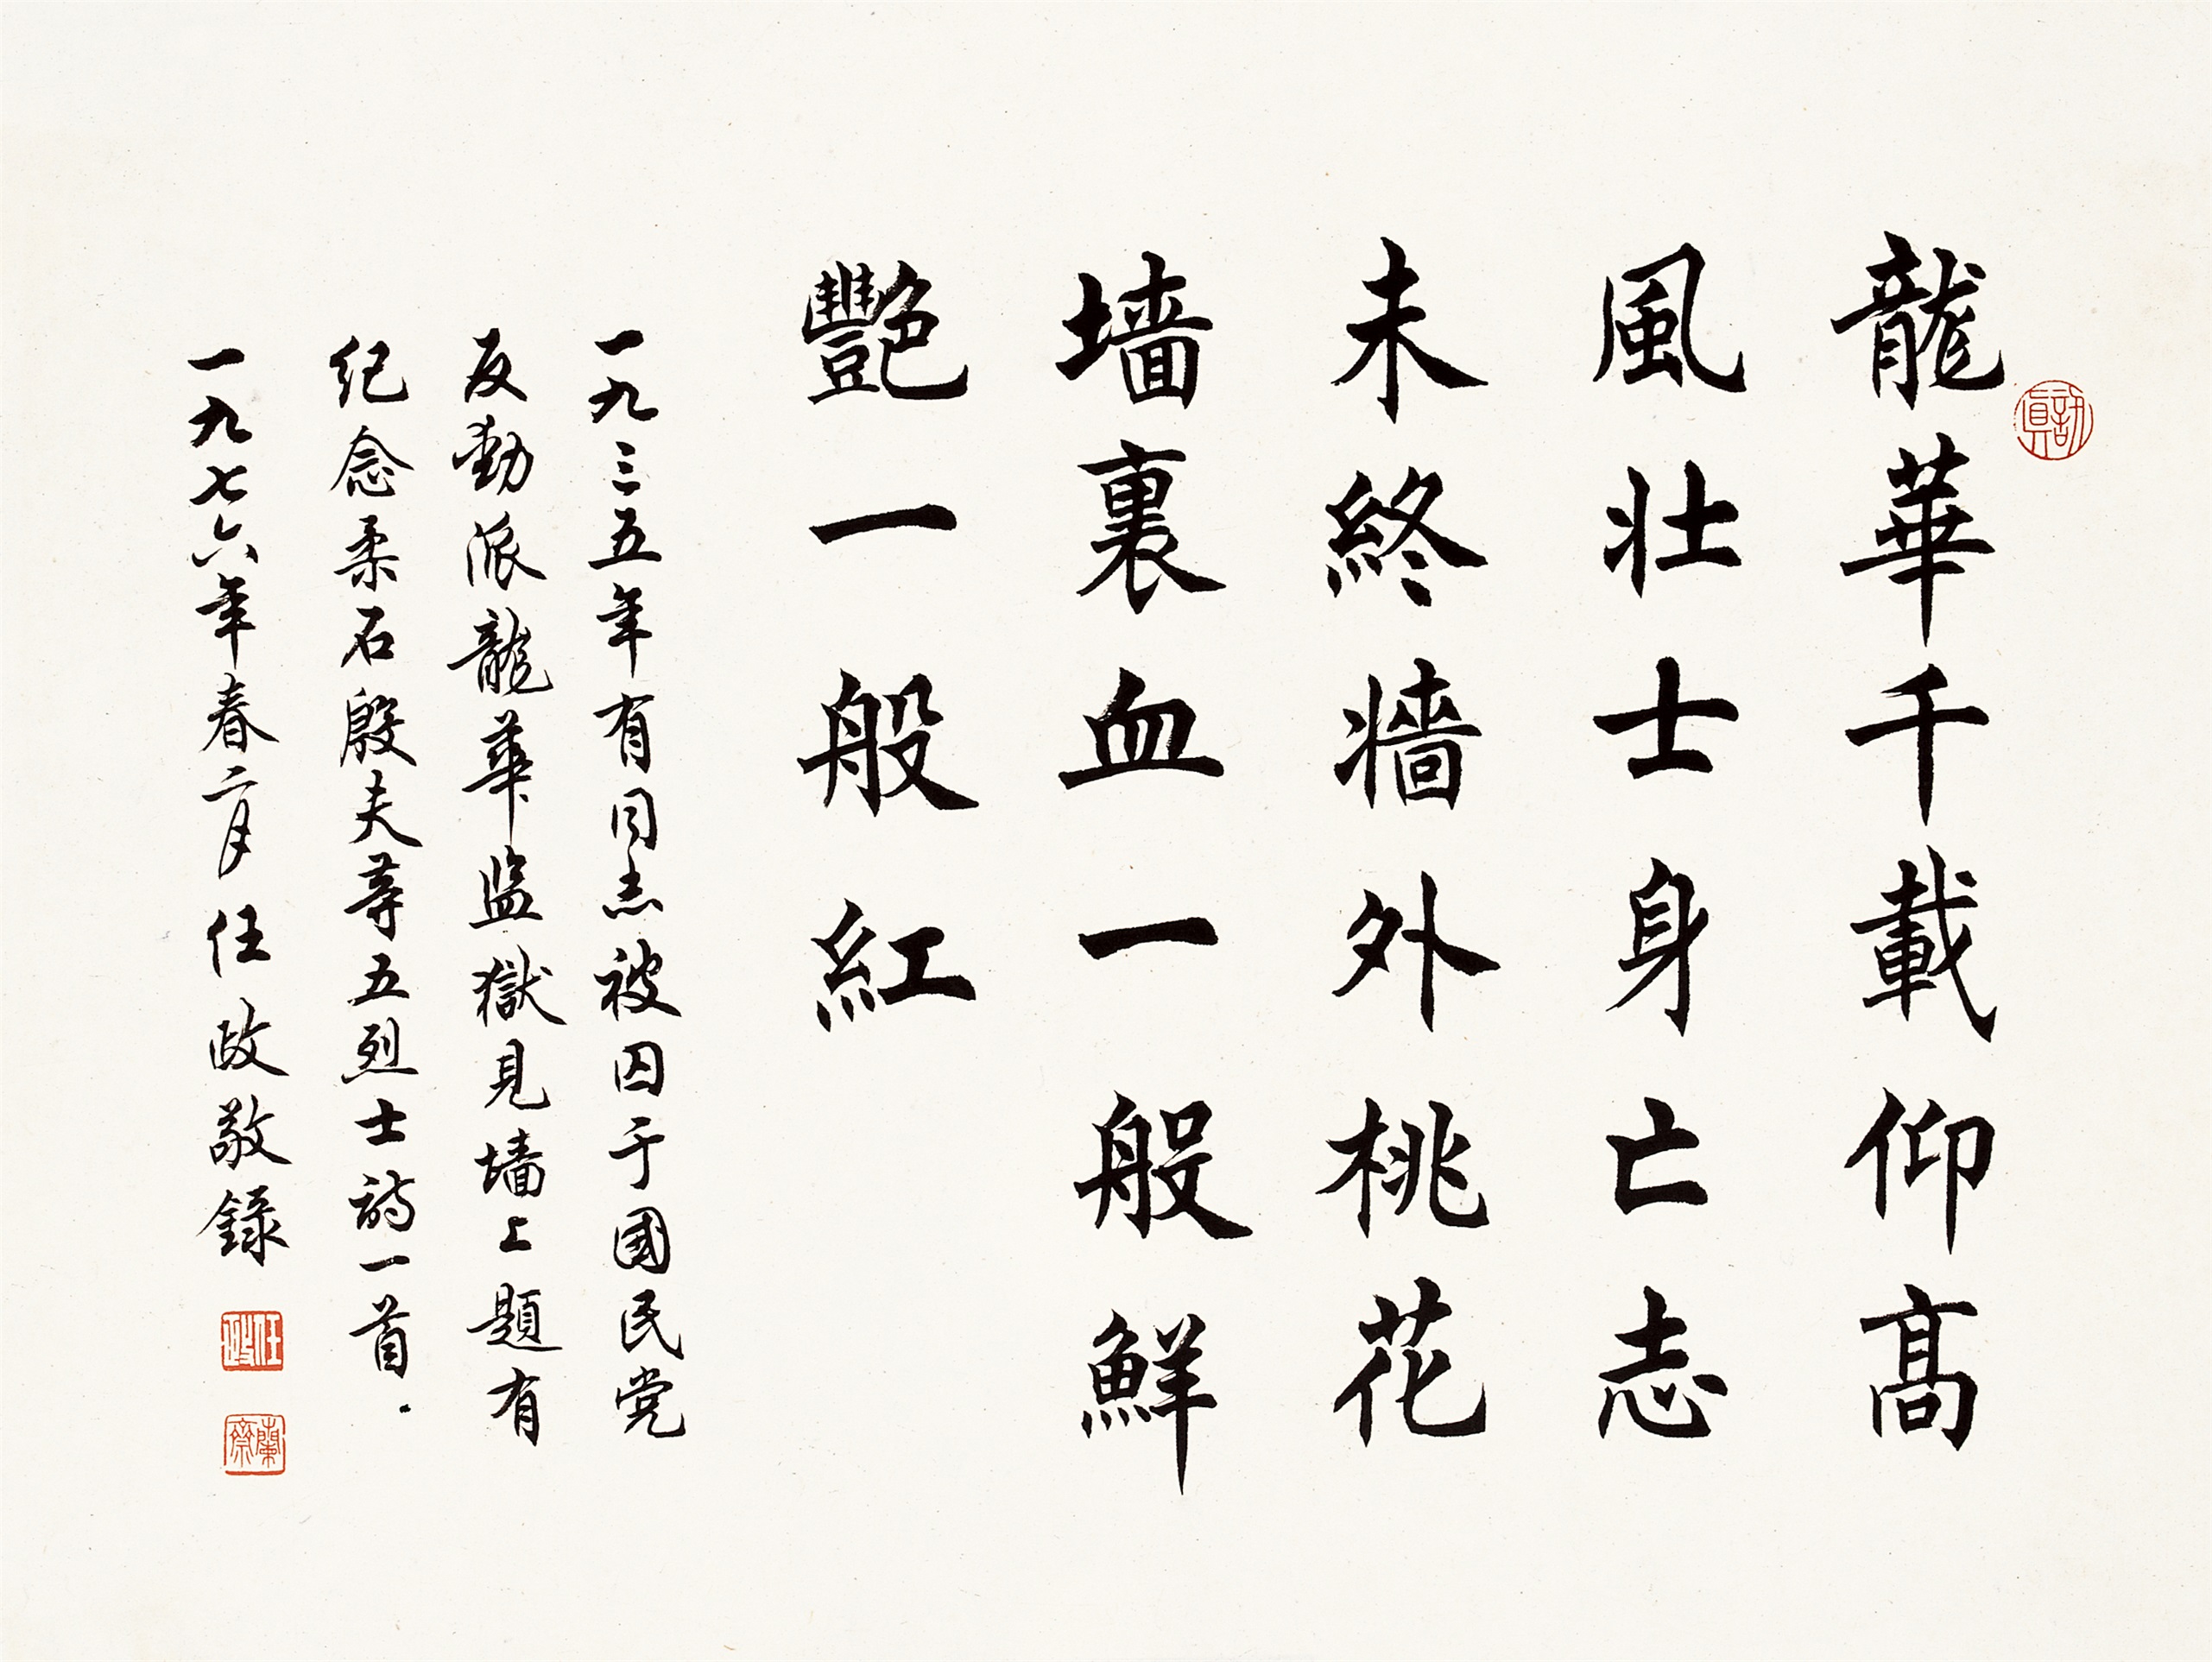 龍華千載仰高
風壯士身亡志
未終牆外桃花
墙裏血一般鮮
艷一般紅
一九三五年有同志被囚于國民党
反動派龍華監獄見墙上題有
纪念柔石殷夫等五烈士詩一首.
一九七六年春二月任政敬錄
任政
蘭齋